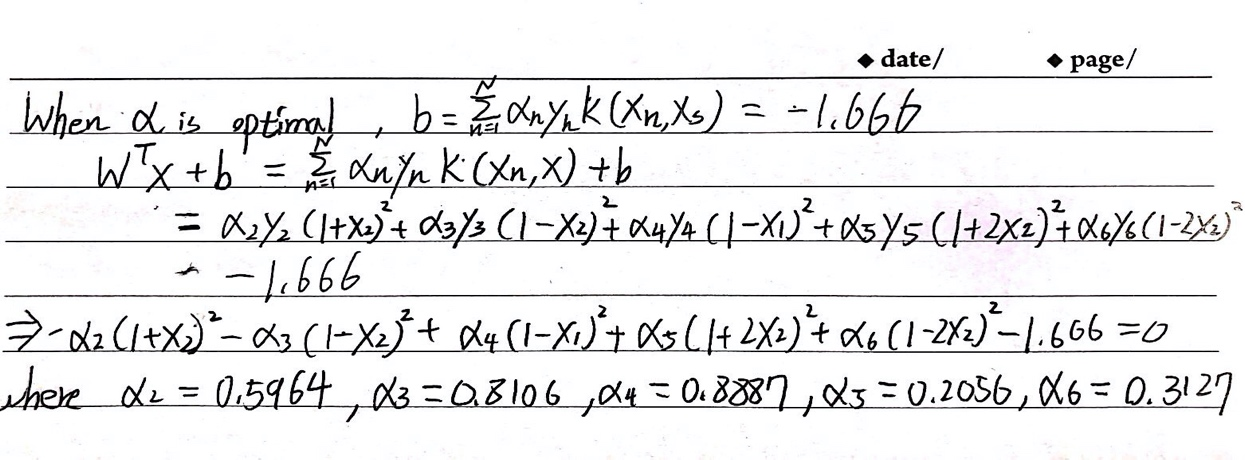 ◆ date/ ◆ page/
When α is optimal, b = Σ_{n=1}^{N} αₙyₙK(Xₙ,Xₛ) = -1.666
Wᵀx + b = Σ_{n=1}^{N} αₙyₙK(Xₙ,X) + b
= α₂y₂(1+X₂)² + α₃y₃(1-X₂)² + α₄y₄(1-X₁)² + α₅y₅(1+2X₂)² + α₆y₆(1-2X₂)²
- -1.666
⇒ -α₂(1+X₂)² - α₃(1-X₂)² + α₄(1-X₁)² + α₅(1+2X₂)² + α₆(1-2X₂)² - 1.666 = 0
where α₂ = 0.5964, α₃ = 0.8106, α₄ = 0.8887, α₅ = 0.2056, α₆ = 0.3127